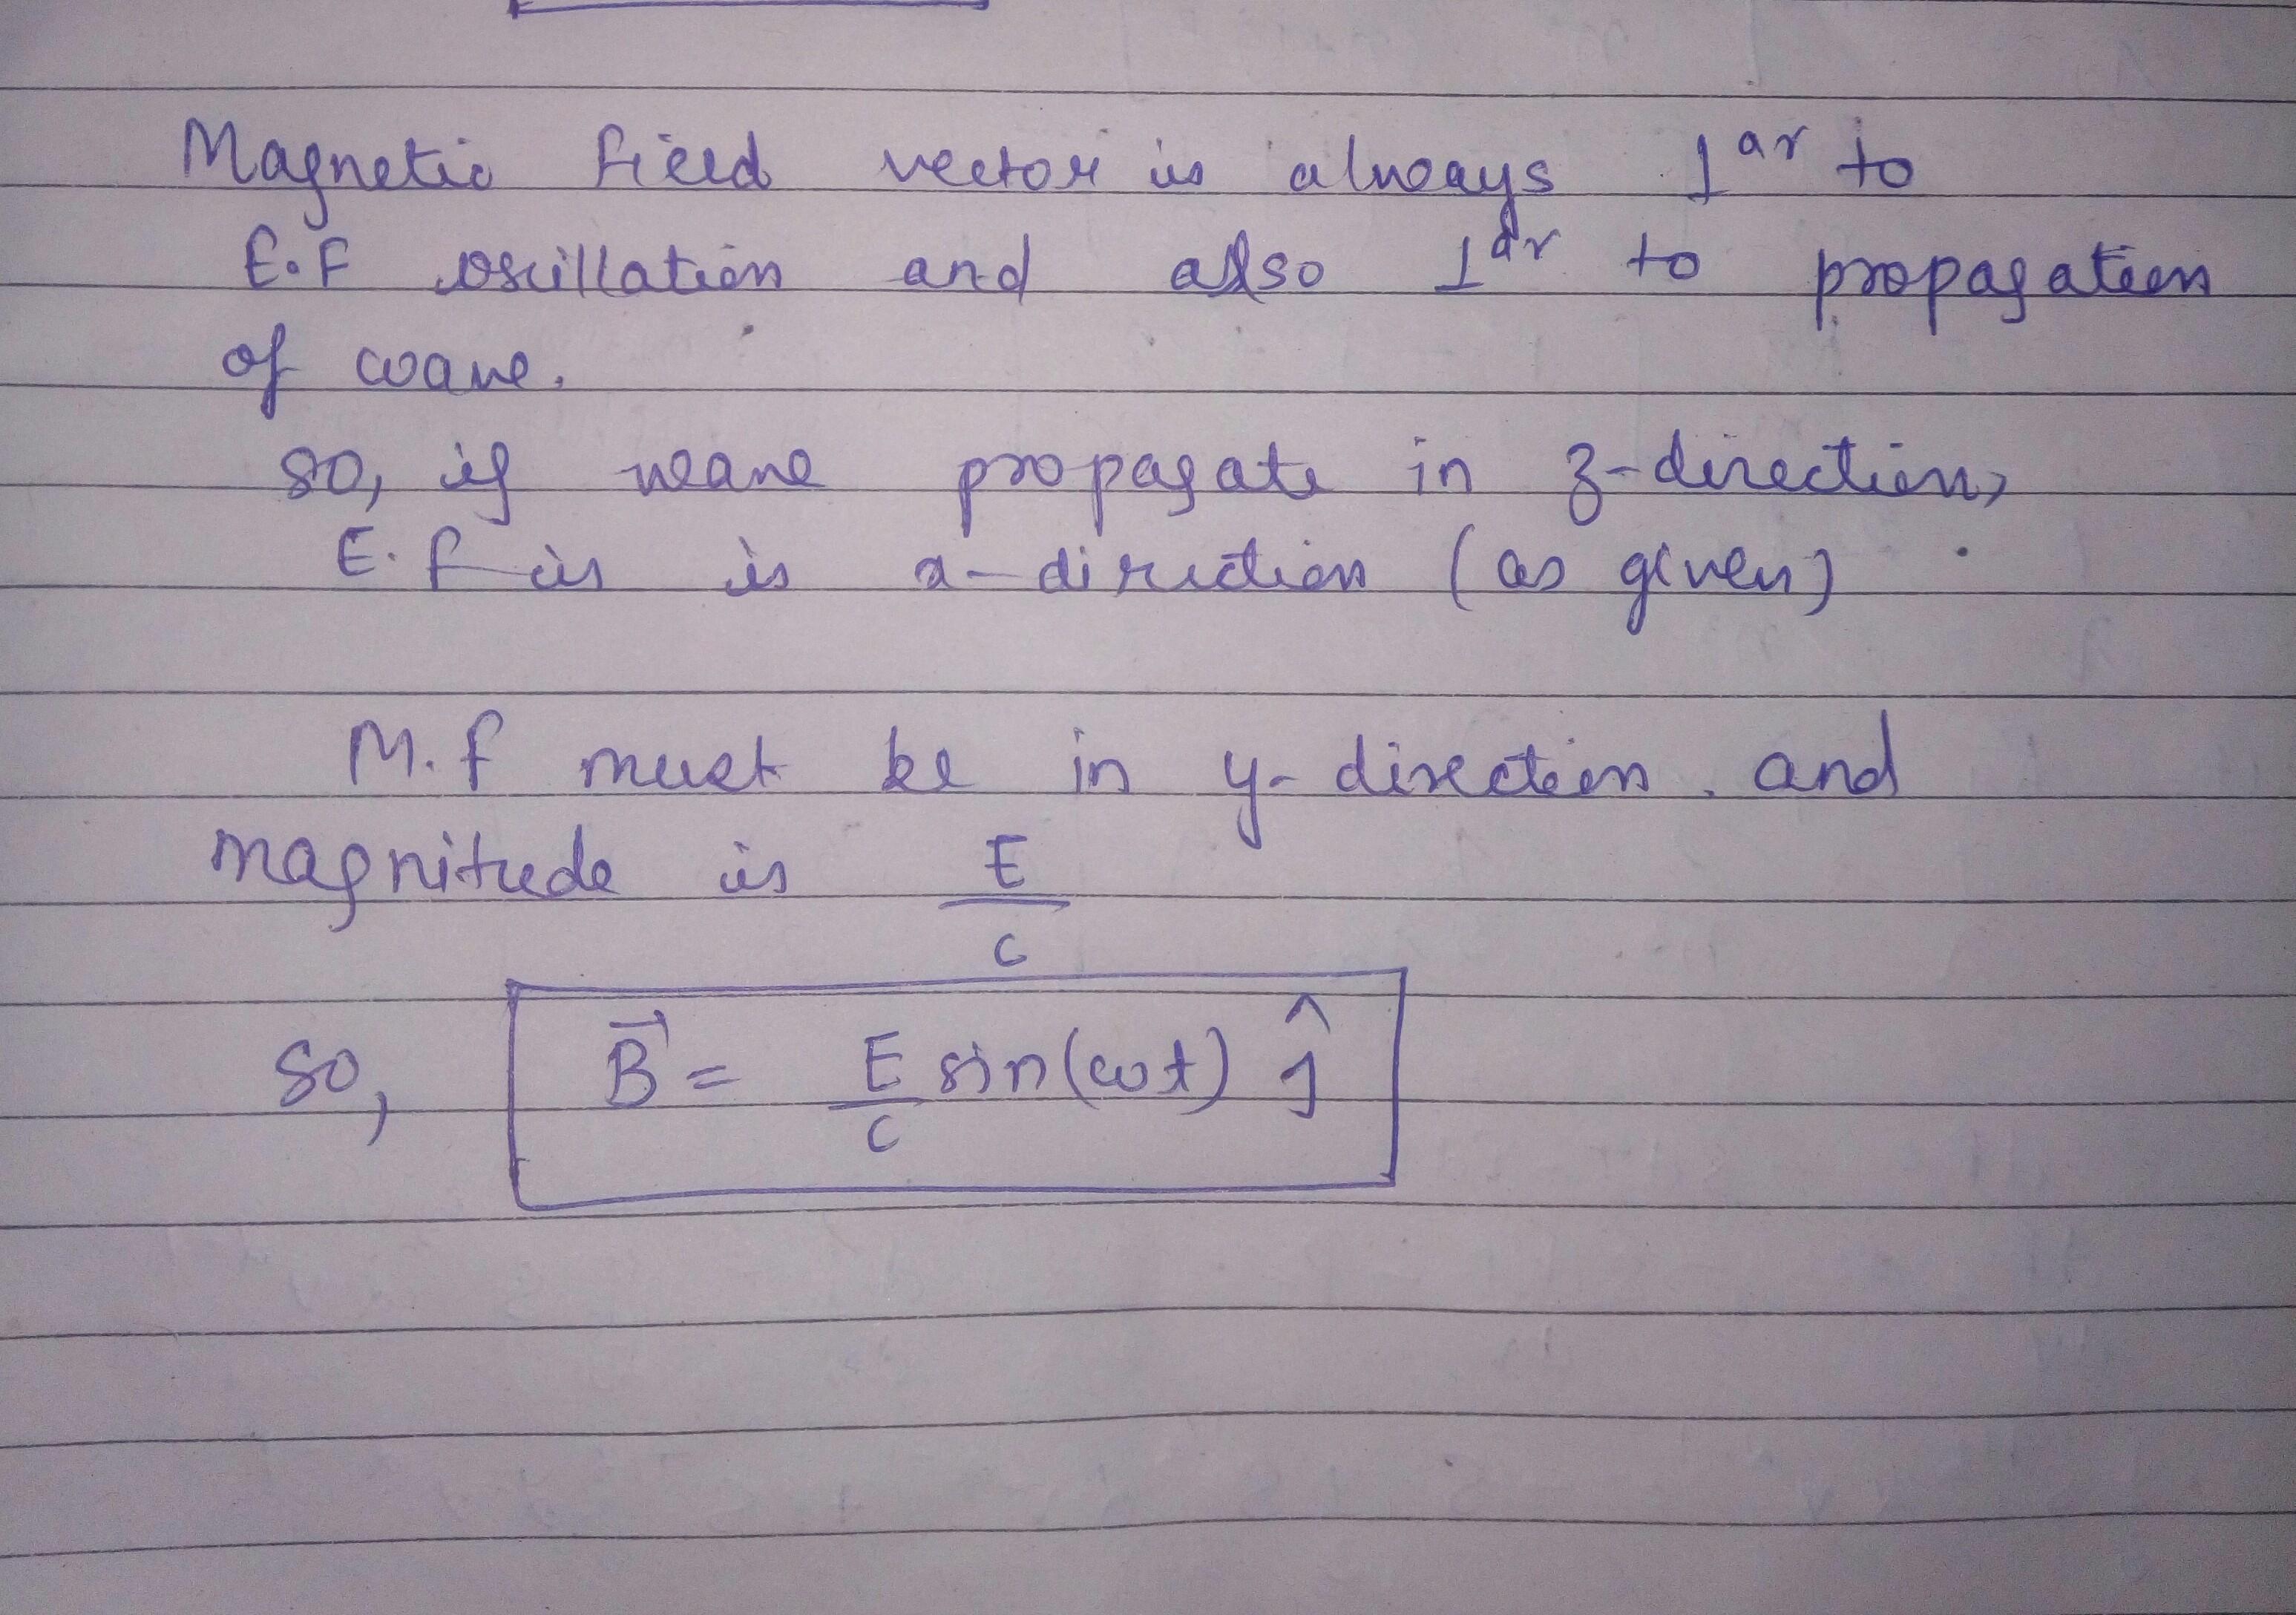 Magnetic field vector is always ⊥ar to
E.F oscillation and also ⊥ar to propagation
of wave.
so, if wave propagate in z-direction,
E.f is is x-direction (as given)
M.f must be in y-direction. and
magnitude is E/c
so, B⃗ = E/c sin(ωt) ĵ